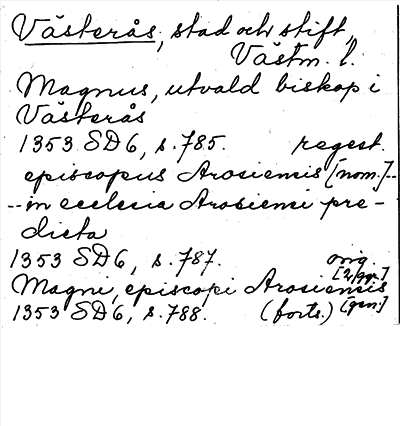 Västerås, stad och stift,
Västm. l.
Magnus, utvald biskop i
Västerås
1353 SD6, s. 785. regest.
episcopus Arosiensis [nom.]--
-- in ecclesia Arosiensi pre-
dicta
1353 SD6, s. 787. orig.
[2/ggr.]
Magni, episcopi Arosiensis
1353 SD6, s. 788. (forts.) [gen.]